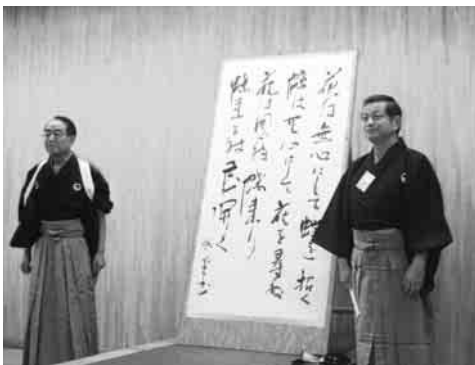 花は無心にして蝶を招く
蝶は無心にして花を尋ぬ
花開く時蝶来り
蝶来る時花開く